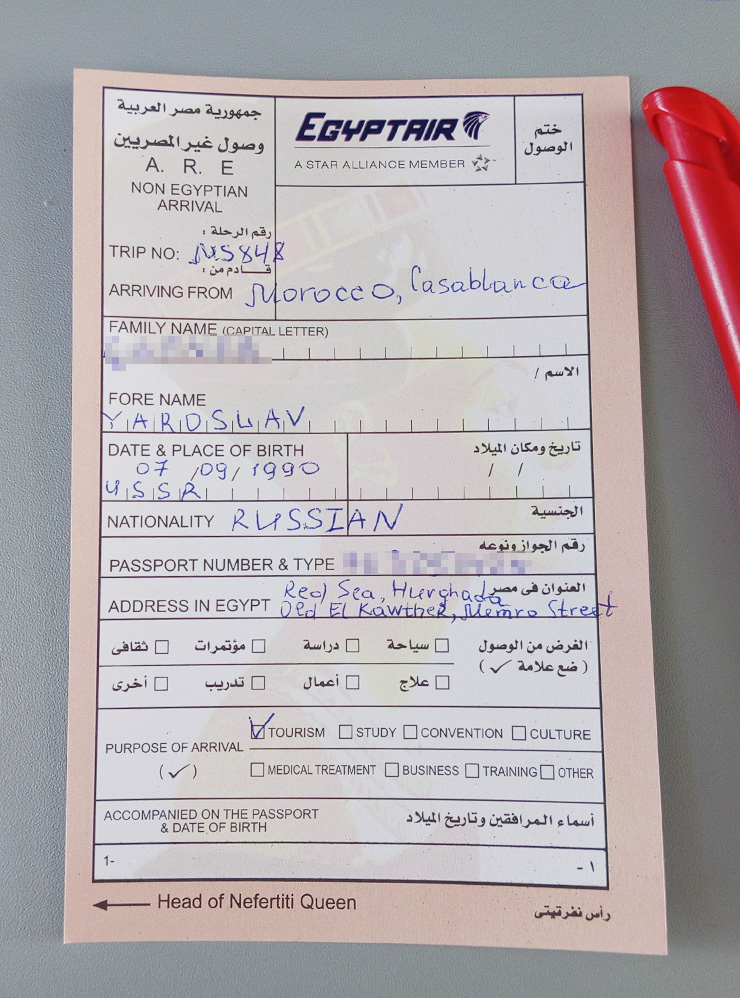 جمهورية مصر العربية
وصول غير المصريين
A. R. E
NON EGYPTIAN
ARRIVAL
EGYPTAIR
A STAR ALLIANCE MEMBER
ختم
الوصول
رقم الرحلة :
TRIP NO: MS848
قادم من :
ARRIVING FROM Morocco, Casablanca
FAMILY NAME (CAPITAL LETTER)
الاسم /
FORE NAME
YAROSLAV
DATE & PLACE OF BIRTH تاريخ ومكان الميلاد
07 /09/ 1990 / /
USSR
NATIONALITY RUSSIAN الجنسية
رقم الجواز ونوعه
PASSPORT NUMBER & TYPE
العنوان فى مصر
ADDRESS IN EGYPT Red Sea, Hurghada
Old El Kawther, Memro Street
الغرض من الوصول سياحة دراسة مؤتمرات ثقافى
( ضع علامة ✓ ) علاج أعمال تدريب أخرى
PURPOSE OF ARRIVAL
(✓)
TOURISM STUDY CONVENTION CULTURE
MEDICAL TREATMENT BUSINESS TRAINING OTHER
ACCOMPANIED ON THE PASSPORT
& DATE OF BIRTH
أسماء المرافقين وتاريخ الميلاد
1- ١ -
Head of Nefertiti Queen رأس نفرتيتى